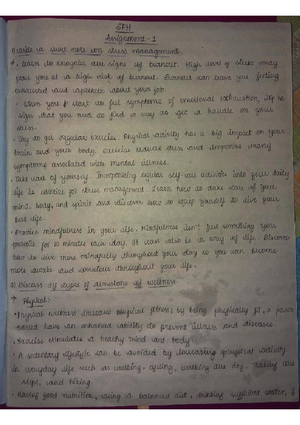 SPH
Assignment - 1
1) Write a short note on stress management.
• Learn to recognize the signs of burnout. High level of stress may
place you at a high risk of burnout. Burnout can leave you feeling
exhausted and apathetic about your job.
• When you start to feel symptoms of emotional exhaustion, it's a
sign that you need to find a way to get a handle on your
stress.
• Try to get regular exercise. Physical activity has a big impact on your
brain and your body. Exercise reduces stress and improves many
symptoms associated with mental illness.
• Take care of yourself. Incorporating regular self-care activities into your daily
life is essential for stress management. Learn how to take care of your
mind, body, and spirit and discover how to equip yourself to live your
best life.
• Practice mindfulness in your life. Mindfulness isn't just something you
practice for 10 minutes each day. It can also be a way of life. Discover
how to live more mindfully throughout your day so you can become
more awake and conscious throughout your life.
2) Discuss types of dimensions of wellness
Physical:
• Physical wellness (includes physical fitness) by being physically fit, a person
would have an enhanced ability to prevent illness and diseases
• Exercise stimulates a healthy mind and body.
• A sedentary lifestyle can be avoided by increasing physical activity
in everyday life such as walking, cycling, walking the dog, taking the
steps, and hiking.
• Having good nutrition, eating a balanced diet, drinking sufficient water,